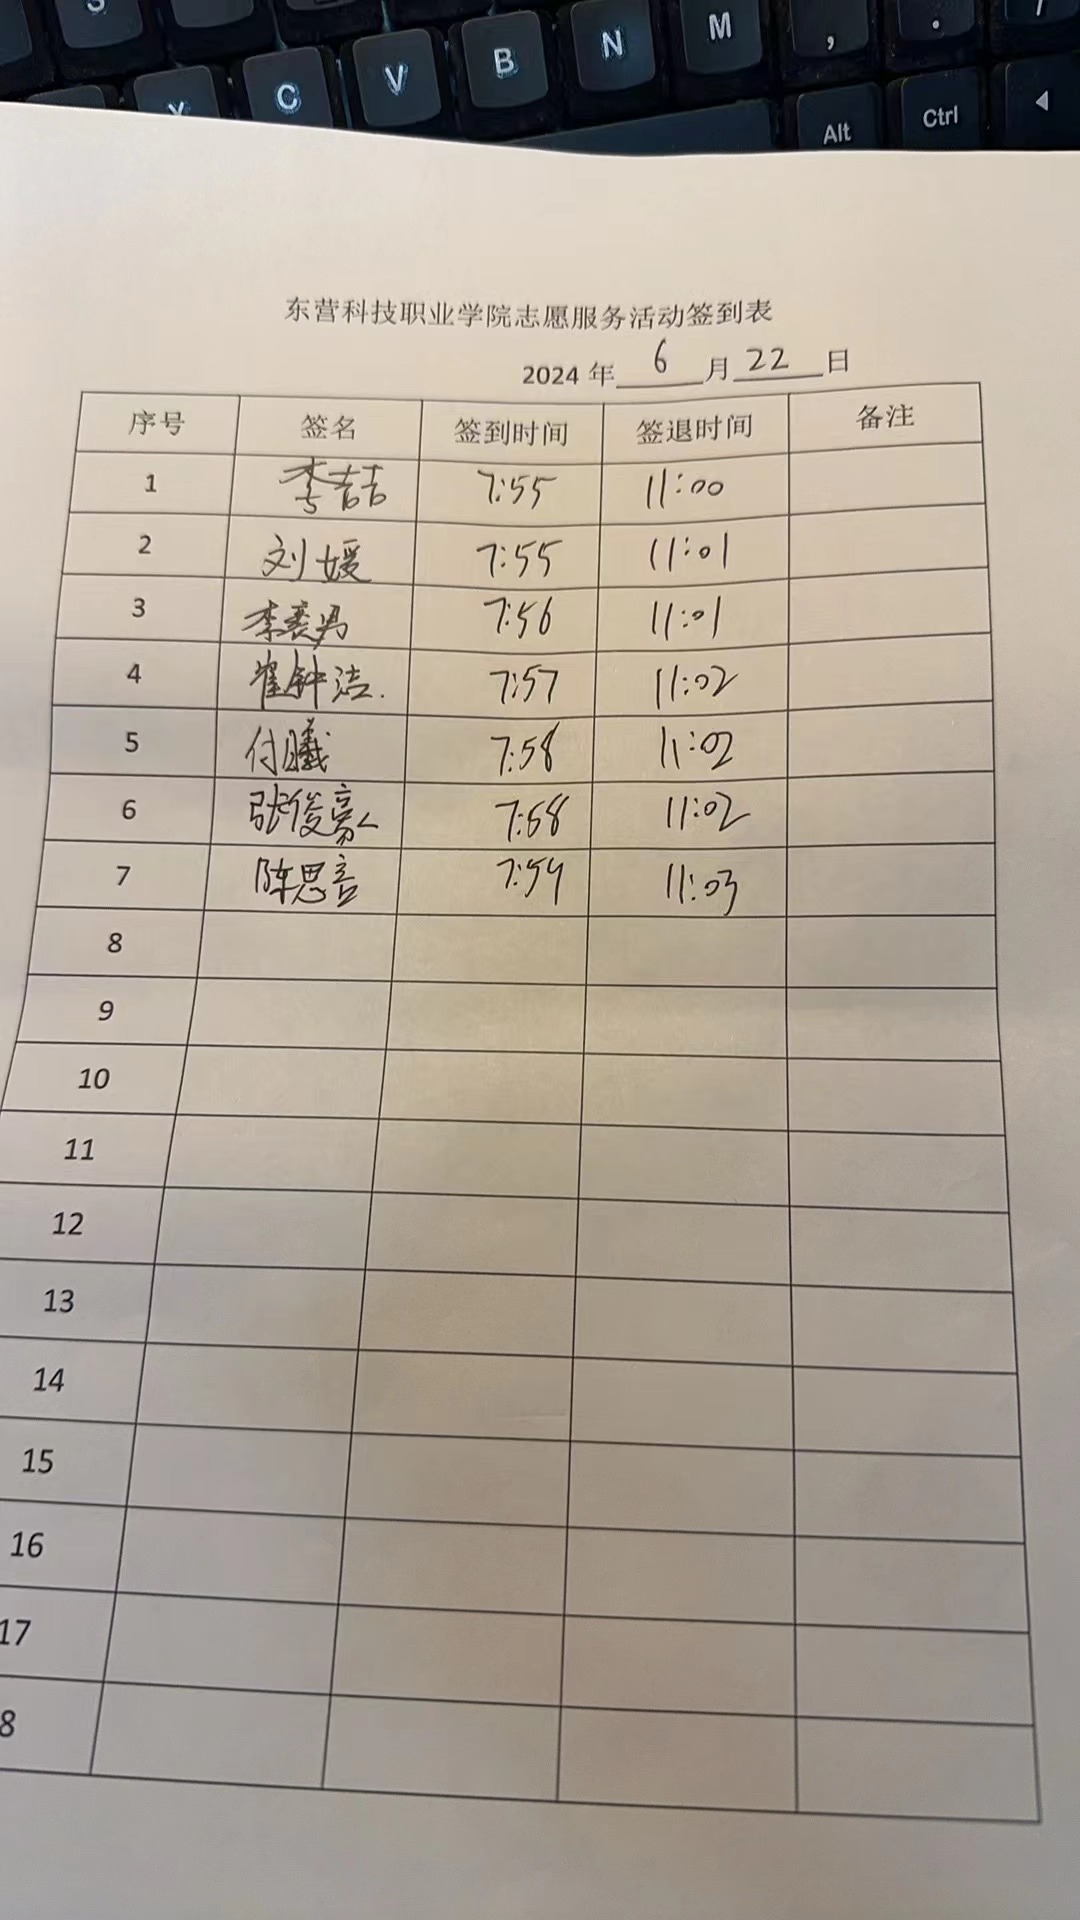 S
X C V B N M , .
Alt Ctrl
东营科技职业学院志愿服务活动签到表
2024 年 6 月 22 日
序号 签名 签到时间 签退时间 备注
1 李喆 7:55 11:00
2 刘媛 7:55 11:01
3 李奕男 7:56 11:01
4 崔钟洁. 7:57 11:02
5 付曦 7:58 11:02
6 张俊豪 7:58 11:02
7 陈思言 7:59 11:03
8
9
10
11
12
13
14
15
16
17
8